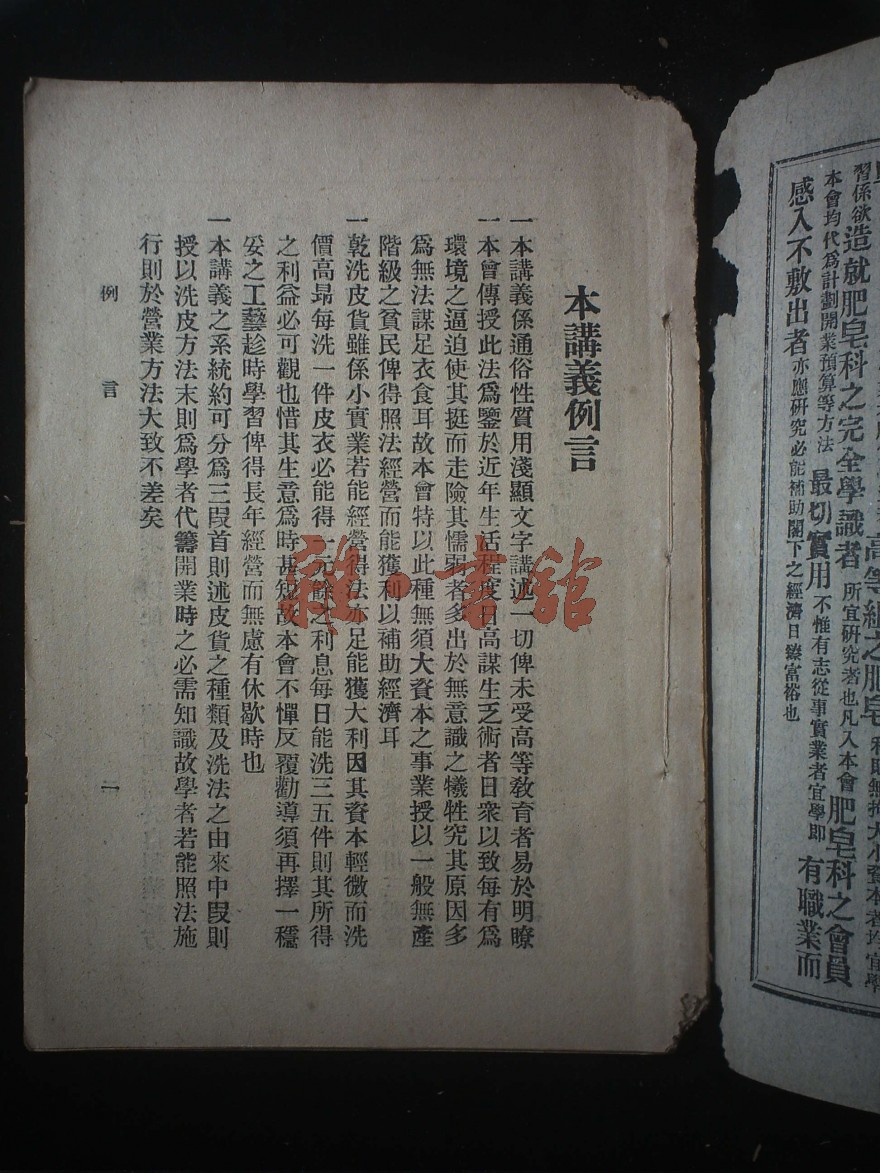 習係欲造就肥皂科之完全學識者所宜研究者也凡入本會肥皂科之會員
本會均代爲計劃開業預算等方法最切實用不惟有志從事實業者宜學即有職業而
感入不敷出者亦應研究必能補助閣下之經濟日臻富裕也
本講義例言
一本講義係通俗性質用淺顯文字講述一切俾未受高等教育者易於明瞭
一本會傳授此法爲鑒於近年生活程度日高謀生乏術者日衆以致每有爲
環境之逼迫使其挺而走險其懦弱者多出於無意識之犧牲究其原因多
爲無法謀足衣食耳故本會特以此種無須大資本之事業授以一般無產
階級之貧民俾得照法經營而能獲利以補助經濟耳
一乾洗皮貨雖係小實業若能經營得法亦足能獲大利因其資本輕微而洗
價高昻每洗一件皮衣必能得一元餘之利息每日能洗三五件則其所得
之利益必可觀也惜其生意爲時甚短故本會不憚反覆勸導須再擇一穩
妥之工藝趁時學習俾得長年經營而無慮有休歇時也
一本講義之系統約可分爲三段首則述皮貨之種類及洗法之由來中段則
授以洗皮方法末則爲學者代籌開業時之必需知識故學者若能照法施
行則於營業方法大致不差矣
例言 一
雜·書館